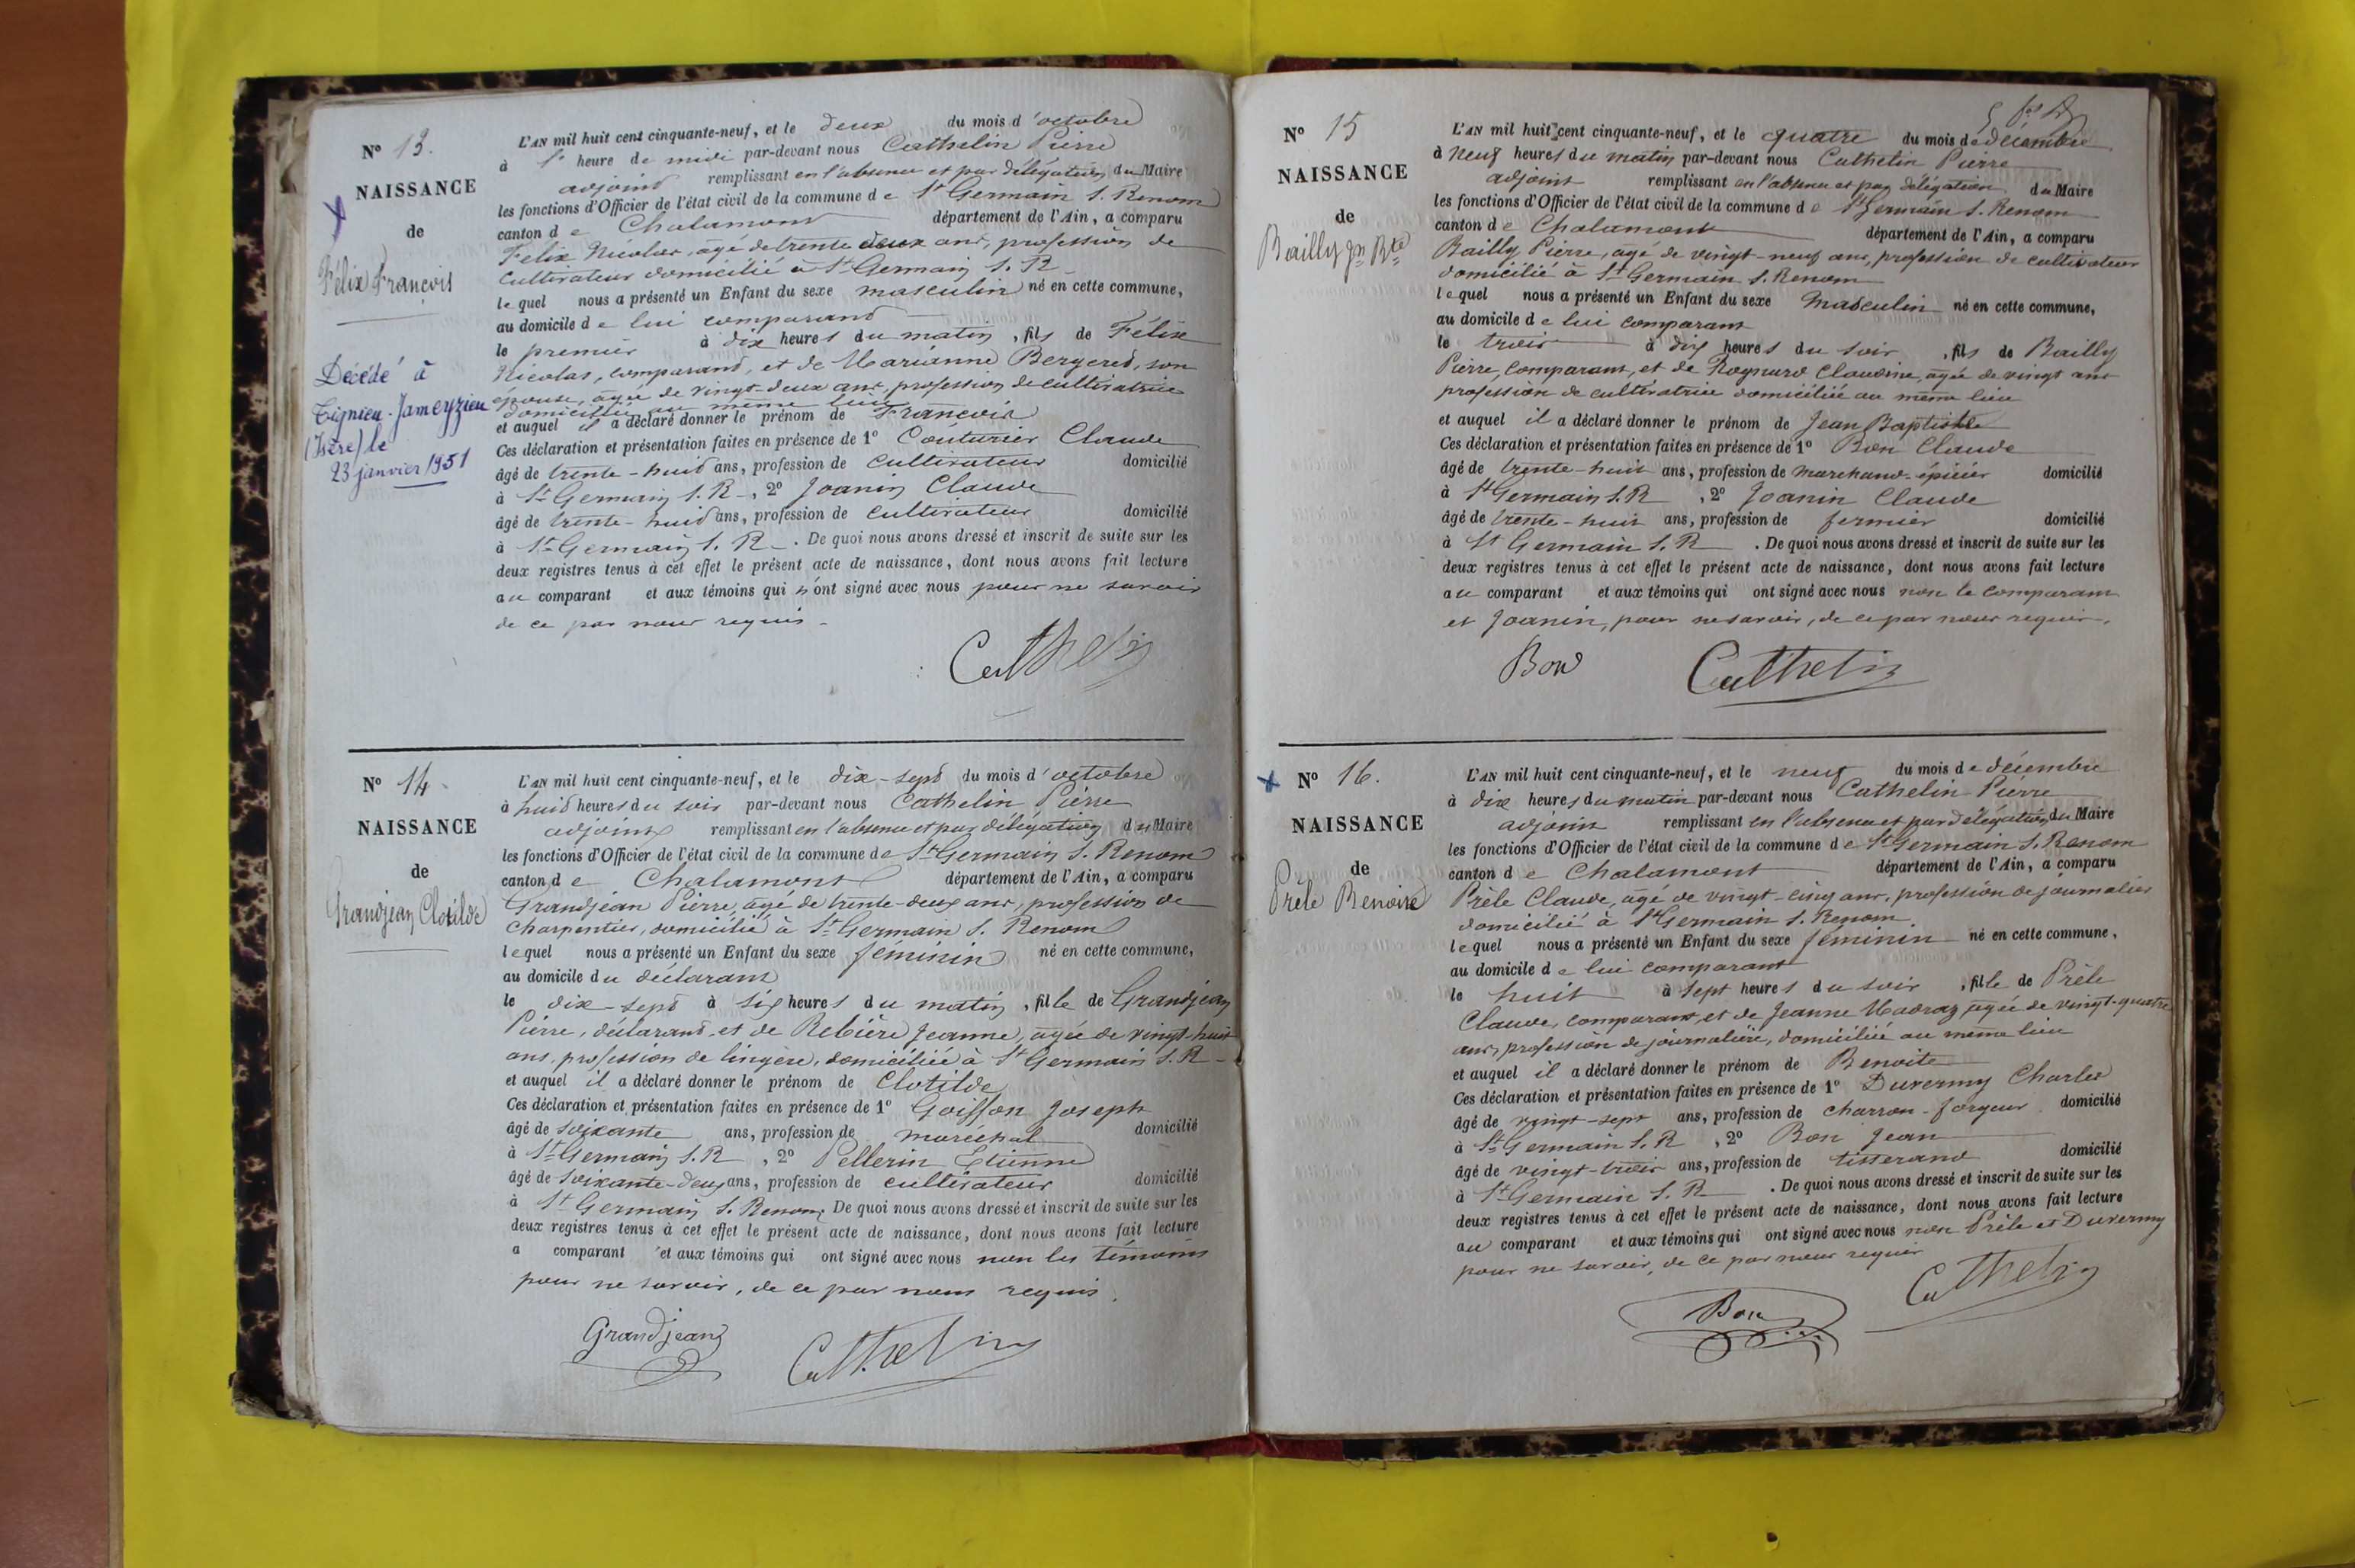 N° 13.
NAISSANCE
de
Félix François
Décédé à
Tignieu-Jameyzieu
(Isère) le
23 janvier 1951
L'AN mil huit cent cinquante-neuf, et le deux du mois d'octobre
à heure de midi par-devant nous Cathelin Pierre
adjoint remplissant en l'absence et par délégation du Maire
les fonctions d'Officier de l'état civil de la commune de St Germain S. Renom
canton de Chalamont département de l'Ain, a comparu
Félix Nicolas, âgé de trente deux ans, profession de
cultivateur domicilié à St Germain S. R
lequel nous a présenté un Enfant du sexe masculin né en cette commune,
au domicile de lui comparant
le premier à dix heures du matin, fils de Félix
Nicolas, comparant, et de Marianne Bergeret, son
épouse, âgée de vingt-deux ans, profession de cultivatrice
domiciliée au même lieu
et auquel il a déclaré donner le prénom de François
Ces déclaration et présentation faites en présence de 1° Couturier Claude
âgé de trente-huit ans, profession de cultivateur domicilié
à St Germain S. R, 2° Joanin Claude
âgé de trente-huit ans, profession de cultivateur domicilié
à St Germain S. R. De quoi nous avons dressé et inscrit de suite sur les
deux registres tenus à cet effet le présent acte de naissance, dont nous avons fait lecture
au comparant et aux témoins qui n'ont signé avec nous pour ne savoir
de ce par nous requis.
Cathelin
N° 14.
NAISSANCE
de
Grandjean Clotilde
L'AN mil huit cent cinquante-neuf, et le dix-sept du mois d'octobre
à huit heures du soir par-devant nous Cathelin Pierre
adjoint remplissant en l'absence et par délégation du Maire
les fonctions d'Officier de l'état civil de la commune de St Germain S. Renom
canton de Chalamont département de l'Ain, a comparu
Grandjean Pierre, âgé de trente-deux ans, profession de
charpentier, domicilié à St Germain S. Renom
lequel nous a présenté un Enfant du sexe féminin né en cette commune,
au domicile du déclarant
le dix-sept à six heures du matin, fille de Grandjean
Pierre, déclarant, et de Rebière Jeanne, âgée de vingt-huit
ans, profession de lingère, domiciliée à St Germain S. R
et auquel il a déclaré donner le prénom de Clotilde
Ces déclaration et présentation faites en présence de 1° Goiffon Joseph
âgé de soixante ans, profession de maréchal domicilié
à St Germain S. R, 2° Pellerin Etienne
âgé de soixante-deux ans, profession de cultivateur domicilié
à St Germain S. Renom. De quoi nous avons dressé et inscrit de suite sur les
deux registres tenus à cet effet le présent acte de naissance, dont nous avons fait lecture
a comparant et aux témoins qui ont signé avec nous non les témoins
pour ne savoir, de ce par nous requis.
Grandjean Cathelin
N° 15
NAISSANCE
de
Bailly Jn Bte
L'AN mil huit cent cinquante-neuf, et le quatre du mois de décembre
à neuf heures du matin par-devant nous Cathelin Pierre
adjoint remplissant en l'absence et par délégation du Maire
les fonctions d'Officier de l'état civil de la commune de St Germain S. Renom
canton de Chalamont département de l'Ain, a comparu
Bailly Pierre, âgé de vingt-neuf ans, profession de cultivateur
domicilié à St Germain S. Renom
lequel nous a présenté un Enfant du sexe masculin né en cette commune,
au domicile de lui comparant
le trois à dix heures du soir, fils de Bailly
Pierre, comparant, et de Reynard Claudine, âgée de vingt ans
profession de cultivatrice domiciliée au même lieu
et auquel il a déclaré donner le prénom de Jean Baptiste
Ces déclaration et présentation faites en présence de 1° Bon Claude
âgé de trente-huit ans, profession de marchand-épicier domicilié
à St Germain S. R, 2° Joanin Claude
âgé de trente-huit ans, profession de fermier domicilié
à St Germain S. R. De quoi nous avons dressé et inscrit de suite sur les
deux registres tenus à cet effet le présent acte de naissance, dont nous avons fait lecture
au comparant et aux témoins qui ont signé avec nous non le comparant
et Joanin, pour ne savoir, de ce par nous requis.
Bon Cathelin
N° 16.
NAISSANCE
de
Prêle Benoite
L'AN mil huit cent cinquante-neuf, et le neuf du mois de décembre
à dix heures du matin par-devant nous Cathelin Pierre
adjoint remplissant en l'absence et par délégation du Maire
les fonctions d'Officier de l'état civil de la commune de St Germain S. Renom
canton de Chalamont département de l'Ain, a comparu
Prêle Claude, âgé de vingt-cinq ans, profession de journalier
domicilié à St Germain S. Renom
lequel nous a présenté un Enfant du sexe féminin né en cette commune,
au domicile de lui comparant
le huit à sept heures du soir, fille de Prêle
Claude, comparant, et de Jeanne Madraz, âgée de vingt-quatre
ans, profession de journalière, domiciliée au même lieu
et auquel il a déclaré donner le prénom de Benoite
Ces déclaration et présentation faites en présence de 1° Duvernay Charles
âgé de vingt-sept ans, profession de charron-forgeur domicilié
à St Germain S. R, 2° Bon Jean
âgé de vingt-trois ans, profession de tisserand domicilié
à St Germain S. R. De quoi nous avons dressé et inscrit de suite sur les
deux registres tenus à cet effet le présent acte de naissance, dont nous avons fait lecture
au comparant et aux témoins qui ont signé avec nous non Prêle et Duvernay
pour ne savoir, de ce par nous requis
Bon Cathelin